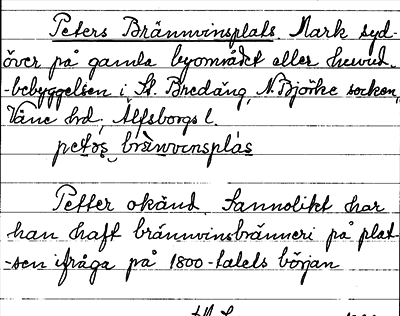 Peters Brännvinsplats. Mark syd-
över på gamla byområdet eller huvud-
-bebyggelsen i St. Bredäng, N. Björke socken,
Väne hd, Älfsborgs l.
petɷs brànvinsplás
Petter okänd. Sannolikt har
han haft brännvinsbränneri på plat-
-sen ifråga på 1800-talets början